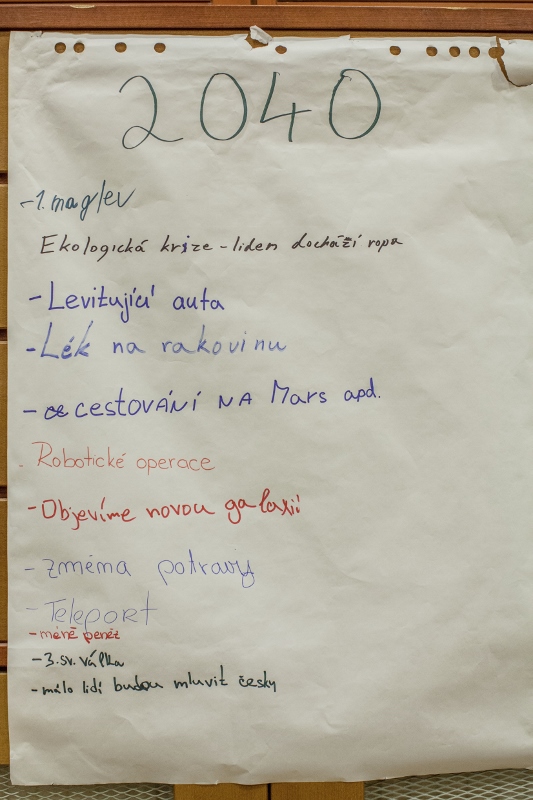 2040
-1. maglev
Ekologická krize - lidem dochází ropa
- Levitující auta
- Lék na rakovinu
- cestování NA Mars apd.
Robotické operace
- Objevíme novou galaxii
- změna potravy
- Teleport
- méně peněz
- 3. sv. válka
- málo lidí budou mluvit česky